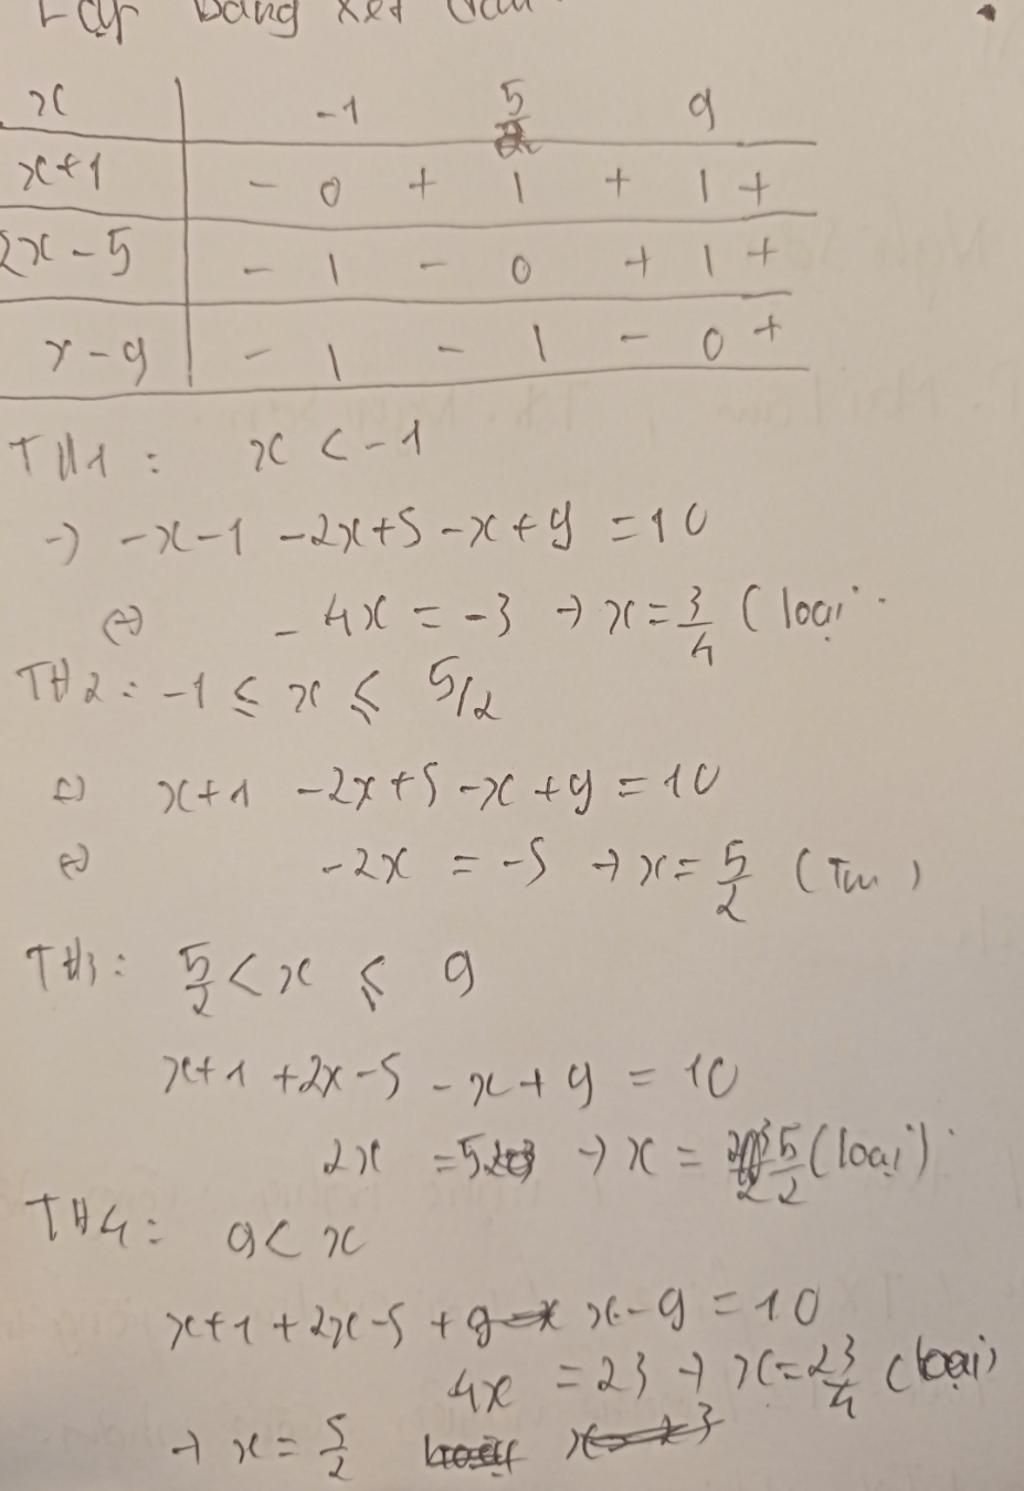 Lập bảng xét dấu
x | -1 5/2 9
x+1 | - 0 + | + | +
2x-5 | - | - 0 + | +
x-9 | - | - | - 0 +
TH1: x < -1
→ -x-1 -2x+5 -x+9 = 10
⇔ -4x = -3 → x = 3/4 (loại
TH2: -1 ≤ x ≤ 5/2
⇔ x+1 -2x+5 -x+9 = 10
⇔ -2x = -5 → x = 5/2 (Tm)
TH3: 5/2 < x ≤ 9
x+1 +2x-5 -x+9 = 10
2x = 5 → x = 5/2 (loại)
TH4: 9 < x
x+1+2x-5 + x-9 = 10
4x = 23 → x = 23/4 (loại)
→ x = 5/2